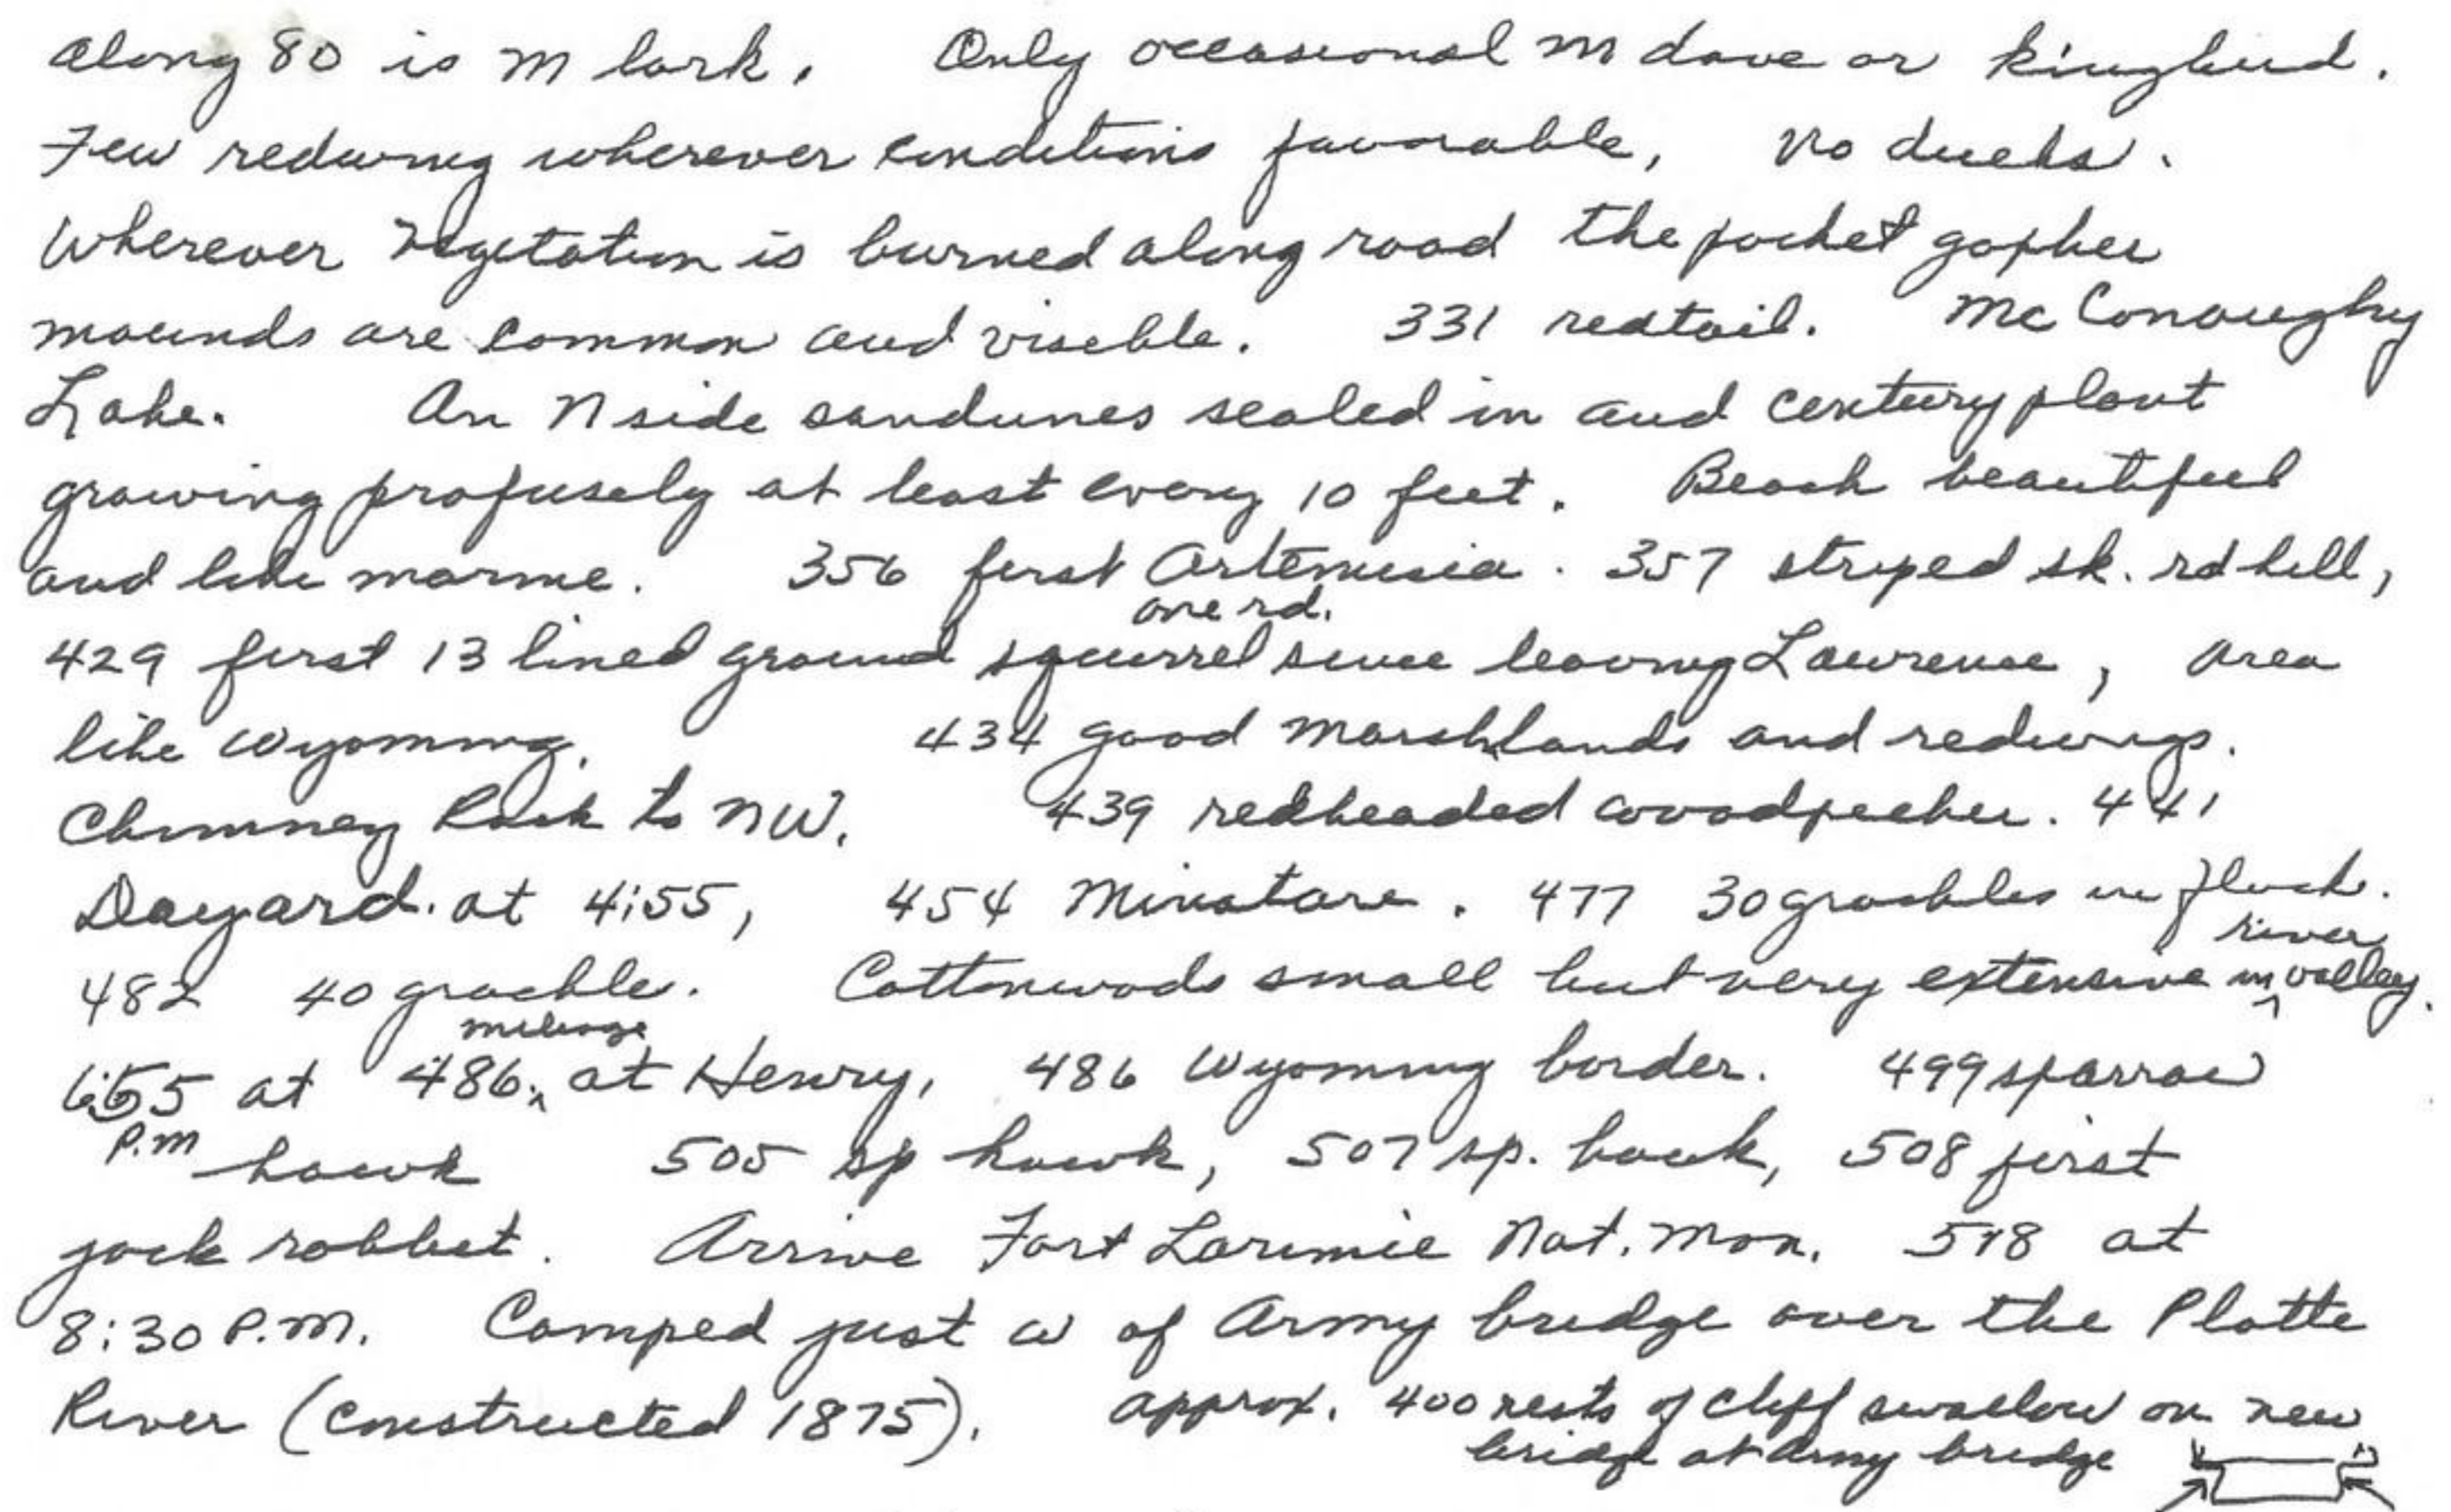 along 80 is m lark. Only occasional m dove or kingbird.
Few redwing wherever conditions favorable, no ducks.
Wherever vegetation is burned along road the pocket gopher
mounds are common and viseble. 331 redtail. McConaughy
Lake. On N side sandunes sealed in and century plant
growing profusely at least every 10 feet. Beach beautiful
and like marine. 356 first Artemisia. 357 striped sk. rd kill,
one rd.
429 first 13 lined ground squirrel since leaving Lawrence, area
like Wyoming. 434 good marshlands and redwings.
Chimney Rock to NW. 439 redheaded woodpecker. 441
Bayard. at 4:55, 454 Minatare. 477 30 grackles in flock.
river
482 40 grackle. Cottonwoods small but very extensive in ^ valley.
mileage
6:55 at 486 ^ at Henry, 486 Wyoming border. 499 sparrow
P.M hawk 505 sp hawk, 507 sp. hawk, 508 first
jack rabbet. Arrive Fort Laramie Nat. Mon. 518 at
8:30 P.M. Camped just W of Army bridge over the Platte
River (constructed 1875). approx. 400 nests of cliff swallow on new
bridge at Army bridge